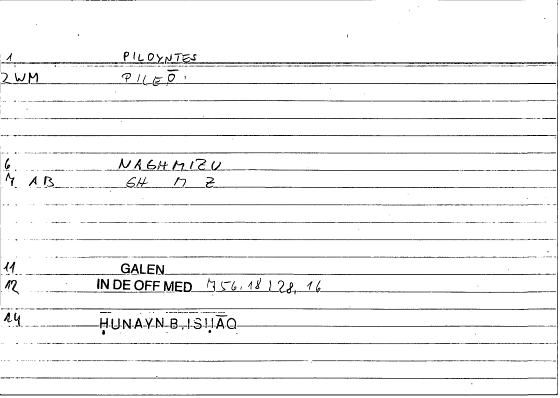 1 PILOYNTES
2 WM PILEŌ
6 NAGHMIZU
7 AB GH M Z
11 GALEN
12 IN DE OFF MED 756,18 / 28, 16
24 ḤUNAYN B. ISḤĀQ